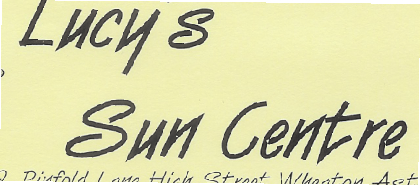 Lucy s
Sun Centre
Pinfold Lane High Street Wheaton Ast